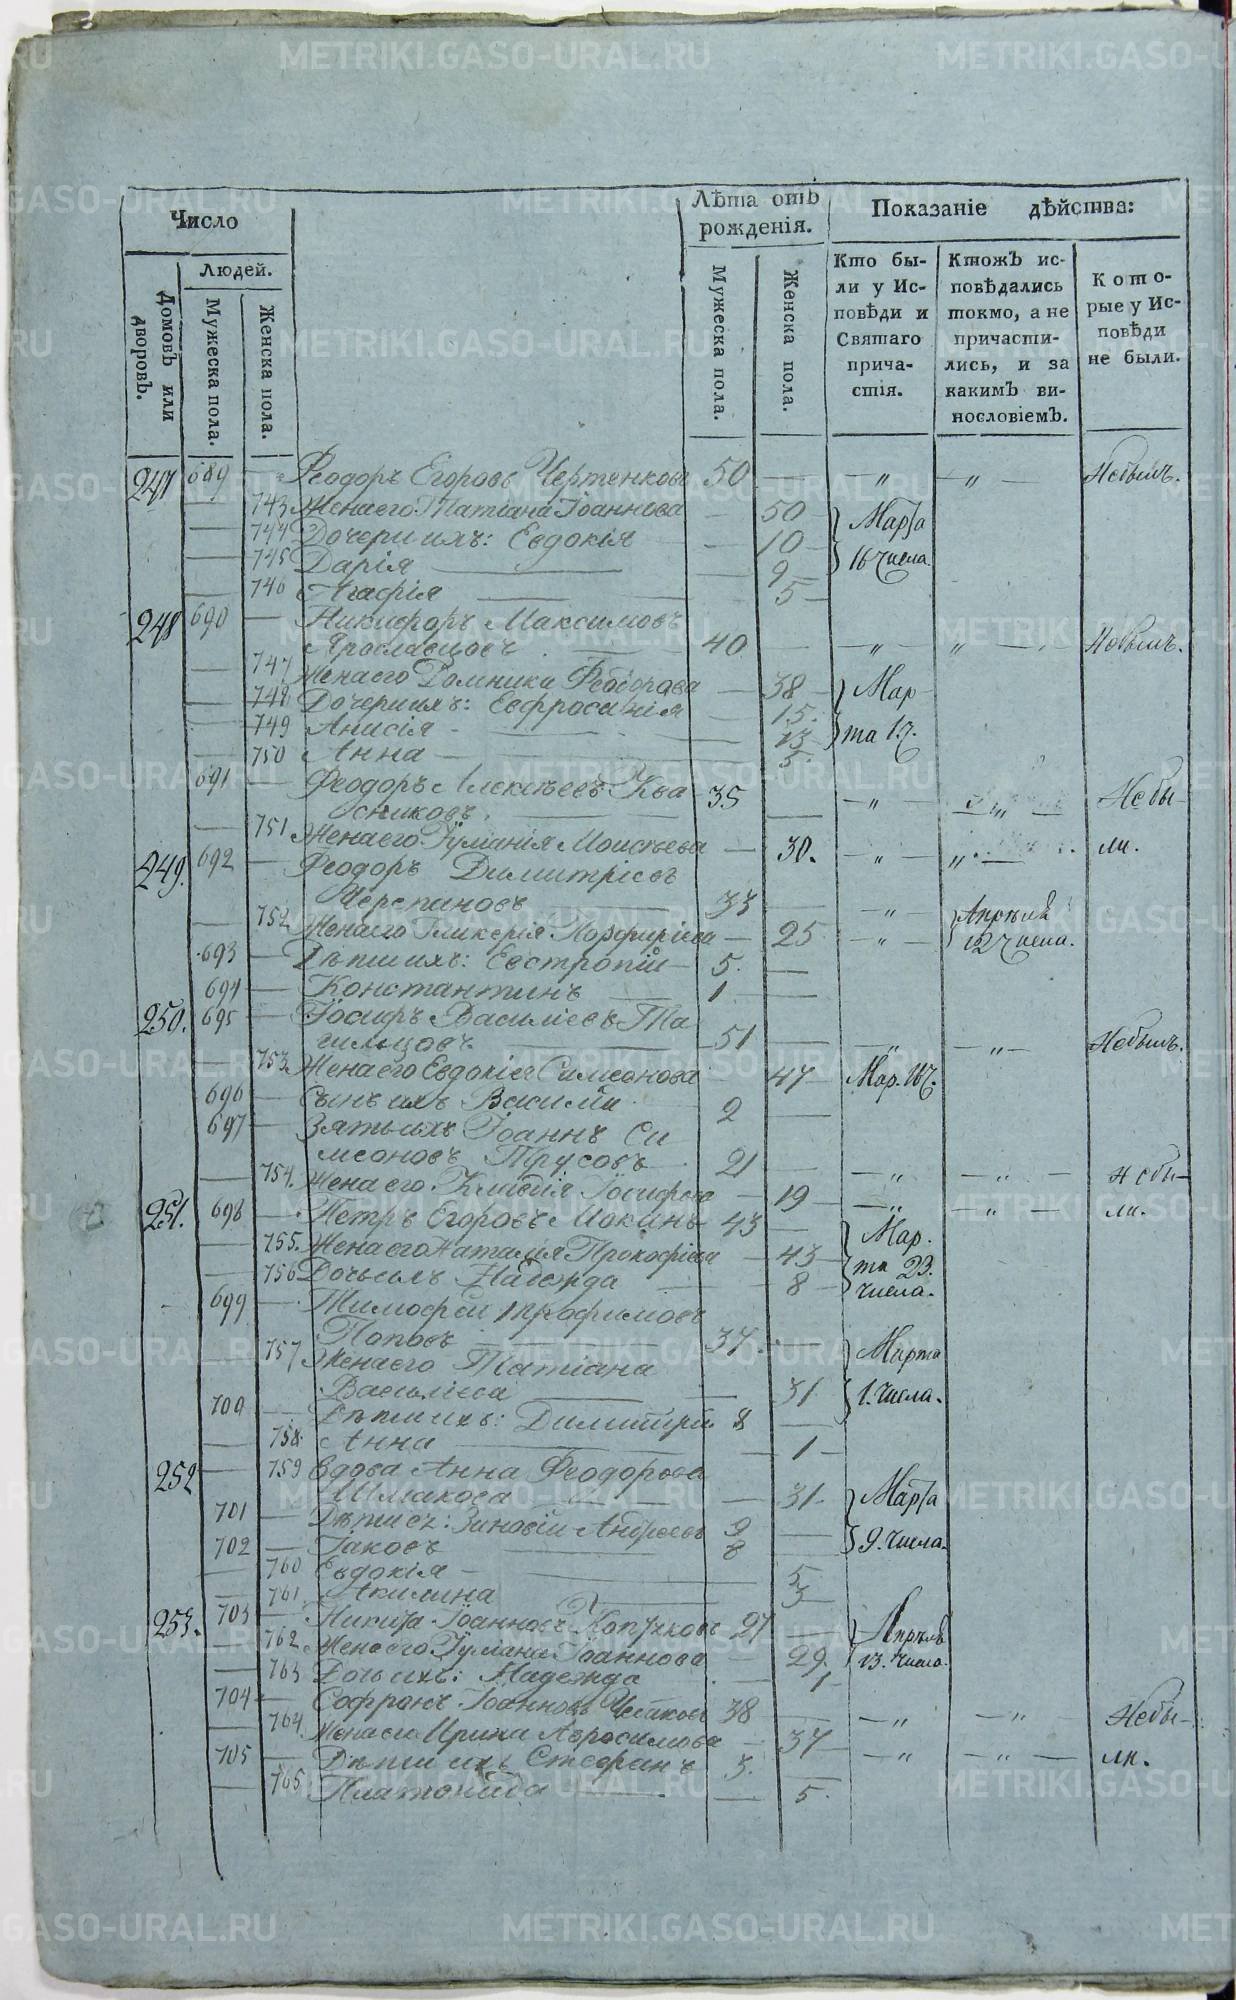 Число
Лѣта отъ рожденія.
Показаніе дѣйства:
Домовъ или дворовъ.
Людей.
Мужеска пола.
Женска пола.
Мужеска пола.
Женска пола.
Кто были у Исповѣди и Святаго причастія.
Ктожъ исповѣдались токмо, а не причастились, и за какимъ винословіемъ.
Которые у Исповѣди не были.
247 689 — Феодоръ Егоровъ Чертенковъ 50 — — „ — „ — Небылъ.
— 743 Женаего Татіана Іоаннова — 50 Марта
— 744 Дочериихъ: Евдокія — 10
— 745 Дарія — 9 16 Числа.
— 746 Агафія — 5
248 690 — Никифоръ Максимовъ
Ярославцовъ 40 — „ — „ — Небылъ.
— 747 Женаего Домника Феодорова — 38 Мар-
— 748 Дочериихъ: Евфросинія — 15.
— 749 Анисія — 13 та 1.ч.
— 750 Анна — 5.
691 — Феодоръ Алексѣевъ Ква
сниковъ 35 — „ — „ — Небы-
— 751 Женаего Іуманія Моисѣева — 30. — „ — „ — ли.
249. 692 — Феодоръ Димитріевъ
Черепановъ 33 — — „ — Апрѣля
— 752 Женаего Гликерія Порфиріева — 25 — „ — 12 Числа.
693 — Дѣтиихъ: Евстропій 5. —
694 — Константинъ 1 —
250. 695 — Іосифъ Василіевъ Та
гильцовъ 51 — „ — „ — Небылъ.
— 753 Женаего Евдокія Симеонова — 47 Мар. 16ч.
696 — Сынъ ихъ Василій 2 —
697 — Зятьихъ Іоаннъ Си
меоновъ Трусовъ 21 — — „ — „ — Небы-
— 754. Женаего Клавдія Іосифова — 19 — „ — „ — ли.
251. 698 — Петръ Егоровъ Мокинъ 43 — Мар.
— 755. Женаего Наталія Прокофіева — 43 та 23.
— 756 Дочьихъ Надежда — 8 числа.
699 — Тимофей Трофимовъ
Поповъ 37. — Марта
— 757 Женаего Татіана
Василіева — 31 1. Числа.
700 — Дѣтиихъ: Димитрій 8 —
— 758 Анна — 1 —
252 — 759 Вдова Анна Феодорова
Шмакова — 31 Марта
701 — Дѣтиея: Зиновій Андреевъ 9 —
702 — Іаковъ 8 — 9. Числа.
— 760 Евдокія — 5
— 761 Акилина — 3
253. 703 — Никита Іоанновъ Копчиковъ 27 Апрѣля
— 762 Женаего Іуманія Іоаннова — 29. 13. Числа.
— 763 Дочьихъ: Надежда — 1
704 — Софронъ Іоанновъ 38 — — „ — „ — Небы-
— 764 Женаего Ирина Авросимова — 37 — „ — „ — ли.
705 — Дѣтиихъ Стефанъ 3. —
— 765 Платонида — 5.